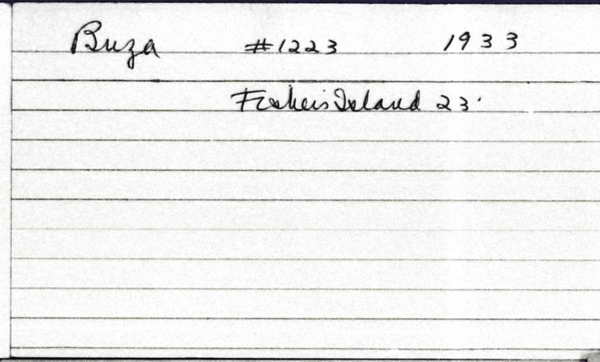 Buza #1223 1933
Fishers Island 23'